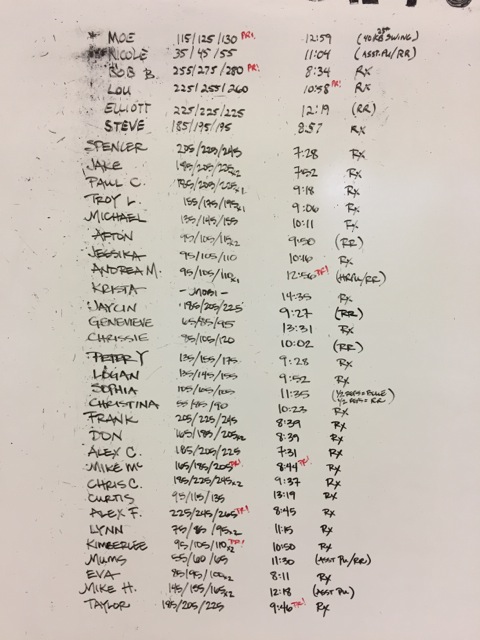 MOE 115/125/130 PR! 12:59 (40KB SWING)
NICOLE 35/45/55 11:04 (ASST. PU/RR)
BOB B. 255/275/280 PR! 8:34 RX
LOU 225/255/260 10:58 PR! RX
ELLIOTT 225/225/225 12:19 (RR)
STEVE 185/195/195 8:57 RX
SPENCER 235/225/245 7:28 RX
JAKE 185/205/225x2 7:52 RX
PAUL C. 185/205/225x1 9:18 RX
TROY L. 155/175/195x1 9:06 RX
MICHAEL 135/145/155 10:11 RX
AFTON 95/105/115x2 9:50 (RR)
JESSIKA 95/105/110 10:16 RX
ANDREA M. 95/105/110x1 12:56 PR! (HRPU/RR)
KRISTA - MOBI - 14:35 RX
JAYLIN 185/205/225 9:27 (RR)
GENEVIEVE 65/85/95 13:31 RX
CHRISSIE 85/105/120 10:02 (RR)
PETER Y 135/155/175 9:28 RX
LOGAN 135/145/155 9:52 RX
SOPHIA 105/105/105 11:35 (1/2 REPS = RR
CHRISTINA 55/85/90 10:23 RX
FRANK 205/225/245 8:39 RX
DON 165/185/205x2 8:39 RX
ALEX C. 185/205/225 7:31 RX
MIKE MC 165/185/205 PR! 8:44 PR! RX
CHRIS C. 185/225/245x2 9:37 RX
CURTIS 95/115/135 13:19 RX
ALEX F. 225/245/265 PR! 8:45 RX
LYNN 75/85/95x2 11:15 RX
KIMBERLEE 95/105/110x2 PR! 10:50 RX
MUMS 55/60/65 11:30 (ASST PU/RR)
EVA 85/95/100x2 8:11 RX
MIKE H. 145/155/165x2 12:18 (ASST PU)
TAYLOR 185/205/225 9:46 PR! RX